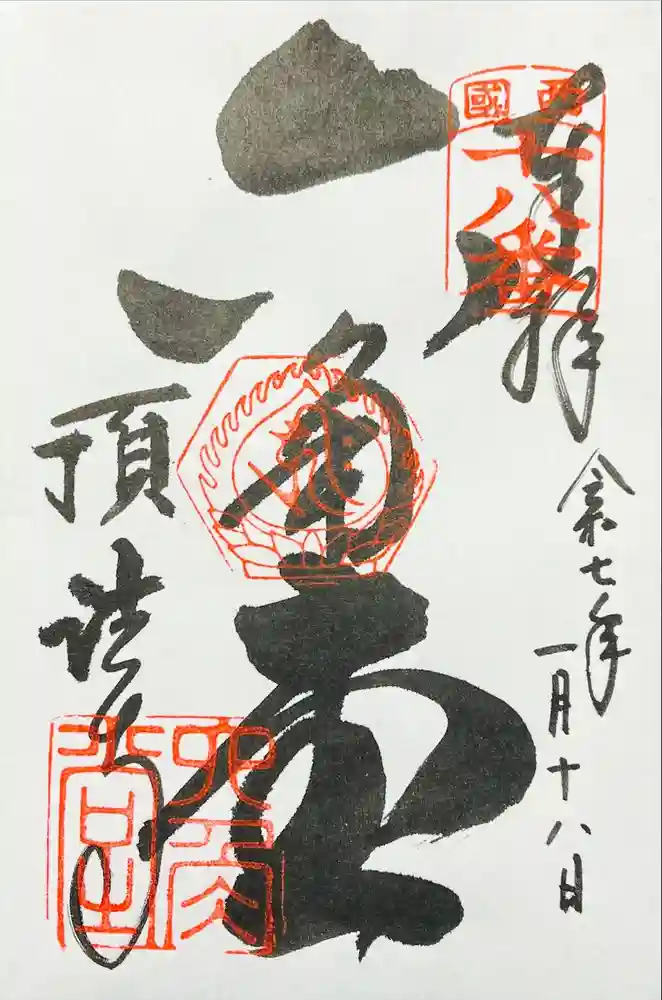 西國
十八番
奉拝
令和七年
一月十八日
六角堂
頂法寺
六角堂